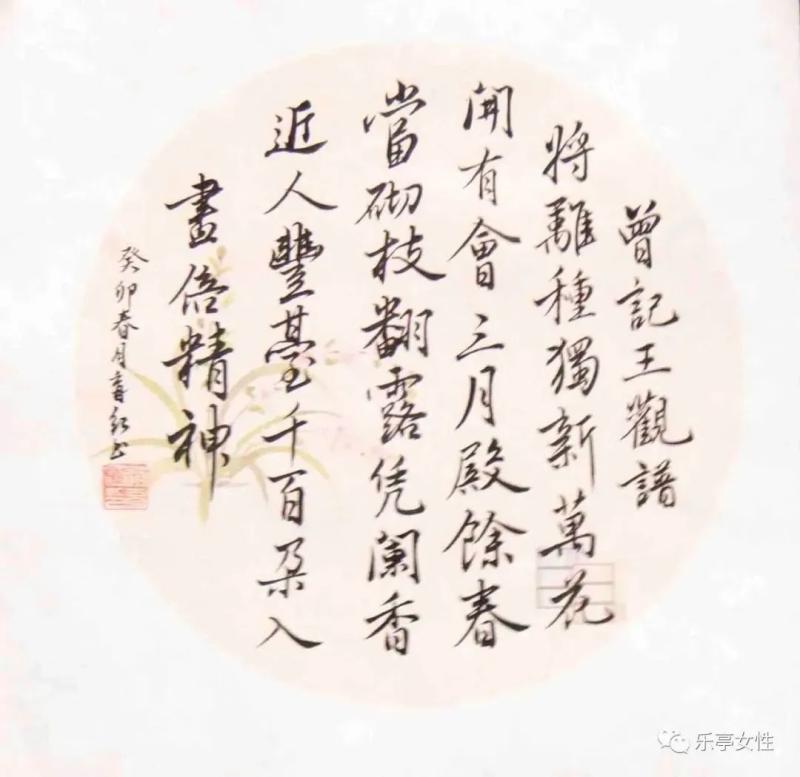 曾記王觀譜
將離種獨新萬花
開有會三月殿餘春
當砌枝翻露凭闌香
近人豐臺千百朶入
畫倍精神
癸卯春月書紅书
乐亭女性